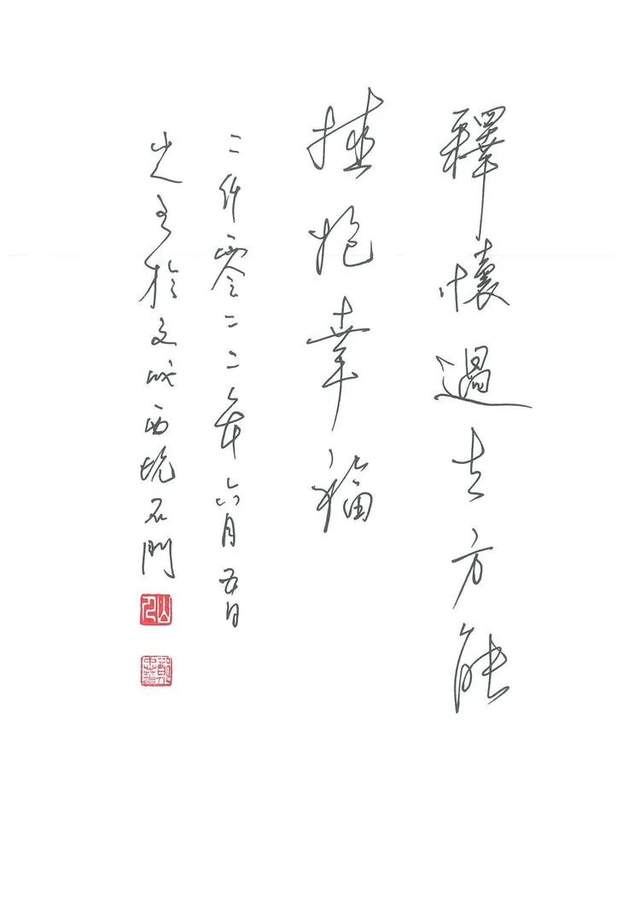 釋懷過去方能
擁抱幸福
二仟零二二年六月五日
於文成西坑石門